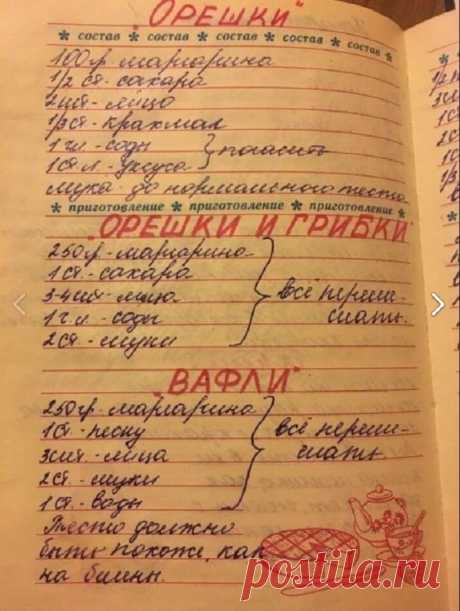 "ОРЕШКИ"
* состав * состав * состав * состав * состав *
100гр. маргарина
1/2 ст. сахара
2шт. яйцо
1/3 ст. крахмал
1 ч.л. соды } погасить
1 ст.л. уксуса
мука до нормального теста
* приготовление * приготовление * приготовление *
"ОРЕШКИ И ГРИБКИ"
250гр. маргарина
1 ст. сахара
3-4шт. яйца
1 ч.л. соды
2 ст. муки
} всё переме-
шать.
"ВАФЛИ"
250гр. маргарина
1 ст. песку
3шт. яйца
2 ст. муки
1 ст. воды
} всё переме-
шать
Тесто должно
быть похоже, как
на блины.
postila.ru